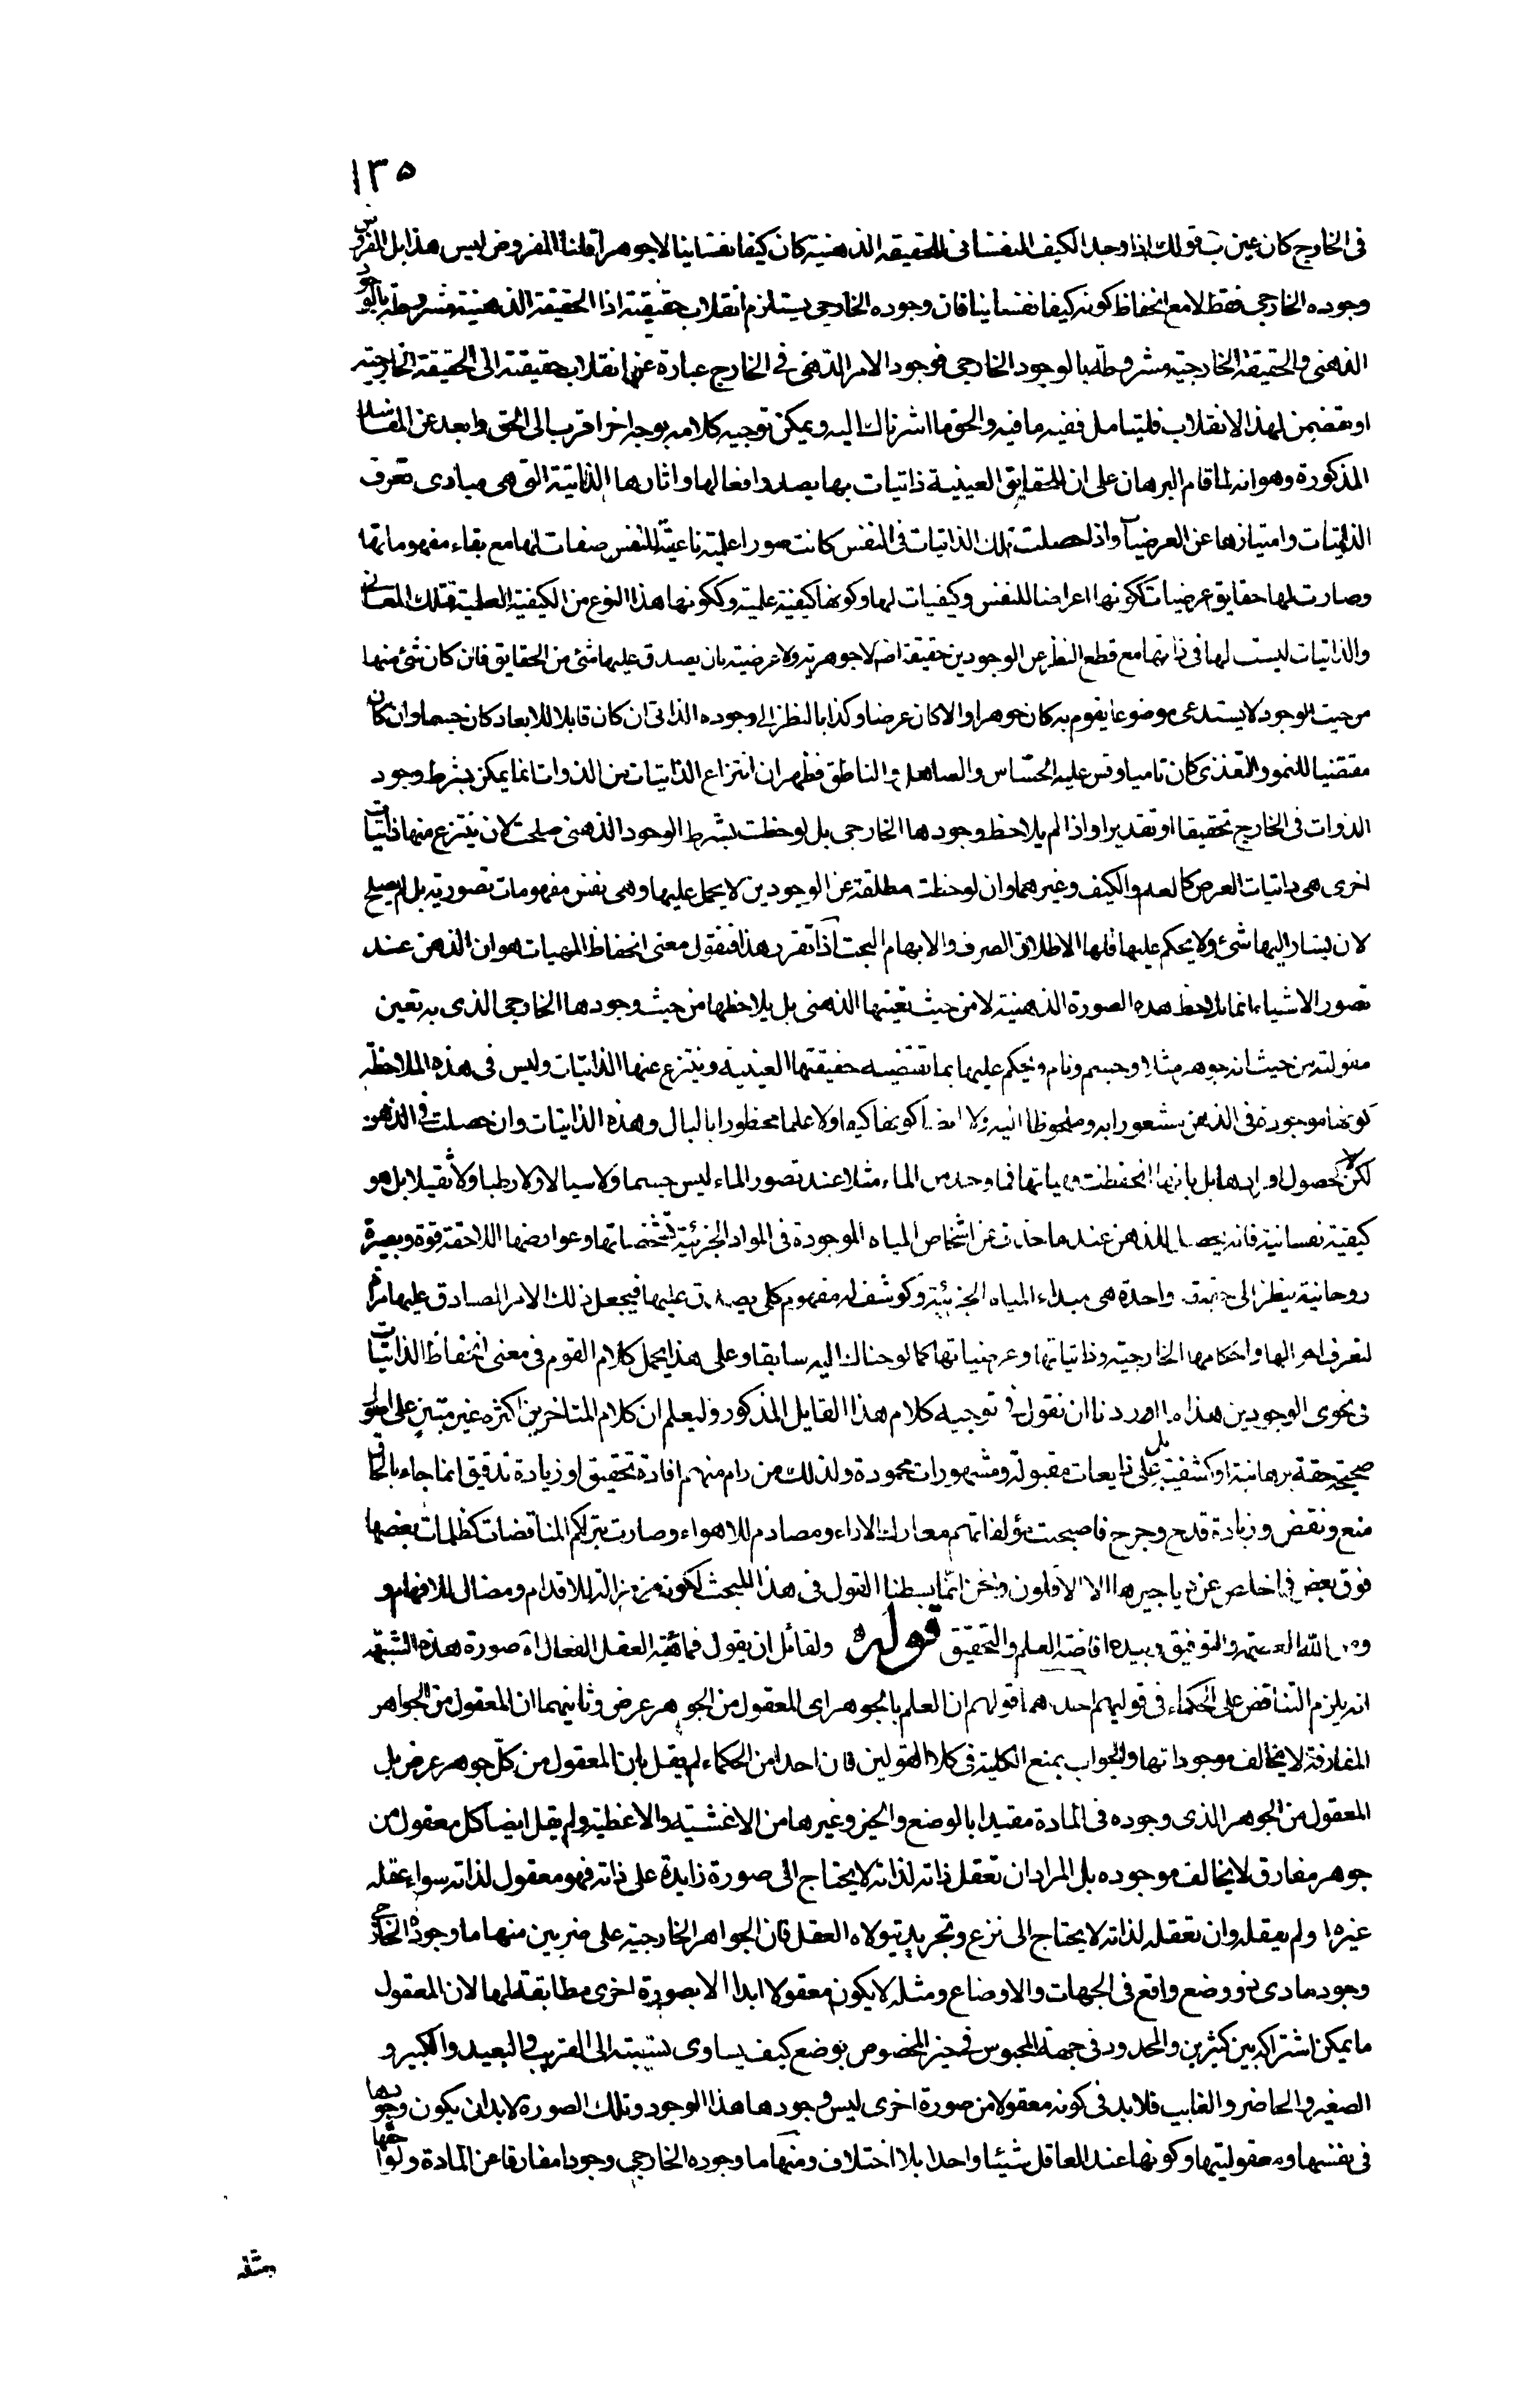 ١٣٥
في الخارج كان عين قولك اذا وجد الكيف النفساني للحقيقة الذهنية كان كيفا نفسانيا لا جوهرا قلنا المفروض ليس هذا بل المفروض
وجوده الخارجي فقط لا مع انحفاظ كونه كيفا نفسانيا فان وجوده الخارجي يستلزم انقلاب حقيقته اذا الحقيقة الذهنية مشروطة بالوجود
الذهني والحقيقة الخارجية مشروطة بالوجود الخارجي فوجود الامر الذهني في الخارج عبارة عن انقلاب حقيقته الى الحقيقة الخارجية
او تضمن لهذا الانقلاب فليتامل ففيه ما فيه والحق ما اشرناك اليه ويمكن توجيه كلامه بوجه اخر اقرب الى الحق وابعد عن المفاسد
المذكورة وهو انه لما قام البرهان على ان للحقايق العينية ذاتيات بها يصدر افعالها واثارها الذاتية التي هي مبادى تعرف
الذاتيات وامتيازها عن العرضيات واذا حصلت تلك الذاتيات في النفس كانت صورا علمية ناعتية للنفس صفات لها مع بقاء مفهوماتها
وصارت لها حقايق عرضيات ككونها اعراضا للنفس وكيفيات لها وكونها كيفية علمية وككونها هذا النوع من الكيفية العلمية فتلك المعاني
والذاتيات ليست لها في ذاتها مع قطع النظر عن الوجودين حقيقة اصلا لا جوهرية ولا عرضية بان يصدق عليها شئ من الحقايق فان كان شئ منها
من حيث الوجود لا يستدعى موضوعا يقوم به كان جوهرا والا كان عرضا وكذا بالنظر الى وجوده الذاتى ان كان قابلا للابعاد كان جسما وان كان
مقتضيا للنمو والتغذى كان ناميا وقس عليه الحساس والصاهل والناطق فظهر ان انتزاع الذاتيات من الذوات انما يمكن بشرط وجود
الذوات في الخارج تحقيقا او تقديرا واذا لم يلاحظ وجودها الخارجى بل لوحظت بشرط الوجود الذهنى صلحت لان ينتزع منها ذاتيات
اخرى هى ذاتيات العرض كالعلم والكيف وغيرهما وان لوحظت مطلقة عن الوجودين لا يحمل عليها وهى نفس مفهومات تصورية بل لم يصلح
لان يشار اليها شئ ولا يحكم عليها فلها الاطلاق الصرف والابهام البحت اذا تقرر هذا فنقول معنى انحفاظ المهيات هو ان الذهن عند
تصور الاشياء انما يلاحظ هذه الصورة الذهنية لا من حيث تعينها الذهنى بل يلاحظها من حيث وجودها الخارجى الذى به تعين
مقولته من حيث انه جوهر مثلا وجسم ونام ويحكم عليها بما تقتضيه حقيقتها العينية وينتزع عنها الذاتيات وليس فى هذه الملاحظة
كونها موجودة فى الذهن مشعورا به وملحوظا اليه ولا ايضا كونها كيفا ولا علما محظورا بالبال وهذه الذاتيات وان حصلت فى الذهن
لكن لا كحصول بل بانها انحفظت مهياتها فما وجد من الماء مثلا عند تصور الماء ليس جسما ولا سيالا ولا رطبا ولا ثقيلا بل هو
كيفية نفسانية فانه يحصل للذهن عند ما حذف عن اشخاص المياه الموجودة فى المواد الجزئية تشخصاتها وعوارضها اللاحقة قوة وبصيرة
روحانية ينظر الى حقيقة واحدة هى مبداء المياه الجزئية وكوشف له مفهوم كلى يصدق عليها فيجعل ذلك الامر الصادق عليها مرآة
لتعرف احوالها واحكامها الخارجية وذاتياتها وعرضياتها كما لوحناك اليه سابقا وعلى هذا يحمل كلام القوم فى معنى انحفاظ الذاتيات
فى نحوى الوجودين هذا ما اوردنا ان نقول فى توجيه كلام هذا القايل المذكور وليعلم ان كلام المتاخرين اكثره غير مبتنى على اصول
صحيحة حقة برهانية او كشفية بل على ذايعات مقبولة ومشهورات محمودة ولذلك من رام منهم افادة تحقيق او زيادة تدقيق انما جاء بالحاق
منع ونقض وزيادة قدح وجرح فاصبحت مؤلفاتهم معارك الاراء ومصادم للاهواء وصارت بتراكم المناقضات كظلمات بعضها
فوق بعض فما خلص عن دياجيرها الا الاقلون ونحن انما بسطنا القول فى هذا المبحث لكونه مزلة للاقدام ومضال للافهام و
من الله العصمة والتوفيق وبيده افاضة العلم والتحقيق قوله ولقائل ان يقول فماهية العقل الفعال اه صورة هذه الشبهة
انه يلزم التناقض على الحكماء فى قوليهم احدهما قولهم ان العلم بالجوهر اى المعقول من الجوهر عرض وثانيهما ان المعقول من الجواهر
المفارقة لا يخالف موجوداتها والجواب بمنع الكلية فى كلا القولين فان احدا من الحكماء لم يقل بان المعقول من كل جوهر عرض بل
المعقول من الجوهر الذى وجوده فى المادة مقيدا بالوضع والحيز وغيرها من الاغشية والاغطية ولم يقل ايضا كل معقول من
جوهر مفارق لا يخالف موجوده بل المراد ان تعقل ذاته لذاته لا يحتاج الى صورة زايدة على ذاته فهو معقول لذاته سواء عقله
غيره او لم يعقله وان تعقله لذاته لا يحتاج الى نزع وتجريد يتولاه العقل فان الجواهر الخارجية على ضربين منها ما وجوده الخارجى
وجود مادى ذو وضع واقع فى الجهات والاوضاع ومثله لا يكون معقولا ابدا الا بصورة اخرى مطابقة لها لان المعقول
ما يمكن اشتراكه بين كثيرين والمحدود فى جهة المحبوس فى حيز المخصوص بوضع كيف يساوى نسبته الى القريب والبعيد والكبير و
الصغير والحاضر والغايب فلا بد فى كونه معقولا من صورة اخرى ليس وجودها هذا الوجود وتلك الصورة لا بد ان يكون وجودها
فى نفسها ومعقوليتها وكونها عند العاقل شيئا واحدا بلا اختلاف ومنها ما وجوده الخارجى وجودا مفارقا عن المادة ولواحقها
ومثله